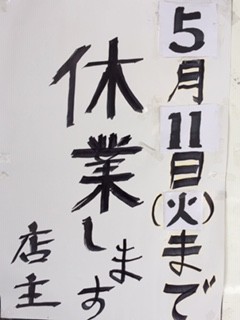 5月11日(火)まで
休業します
店主